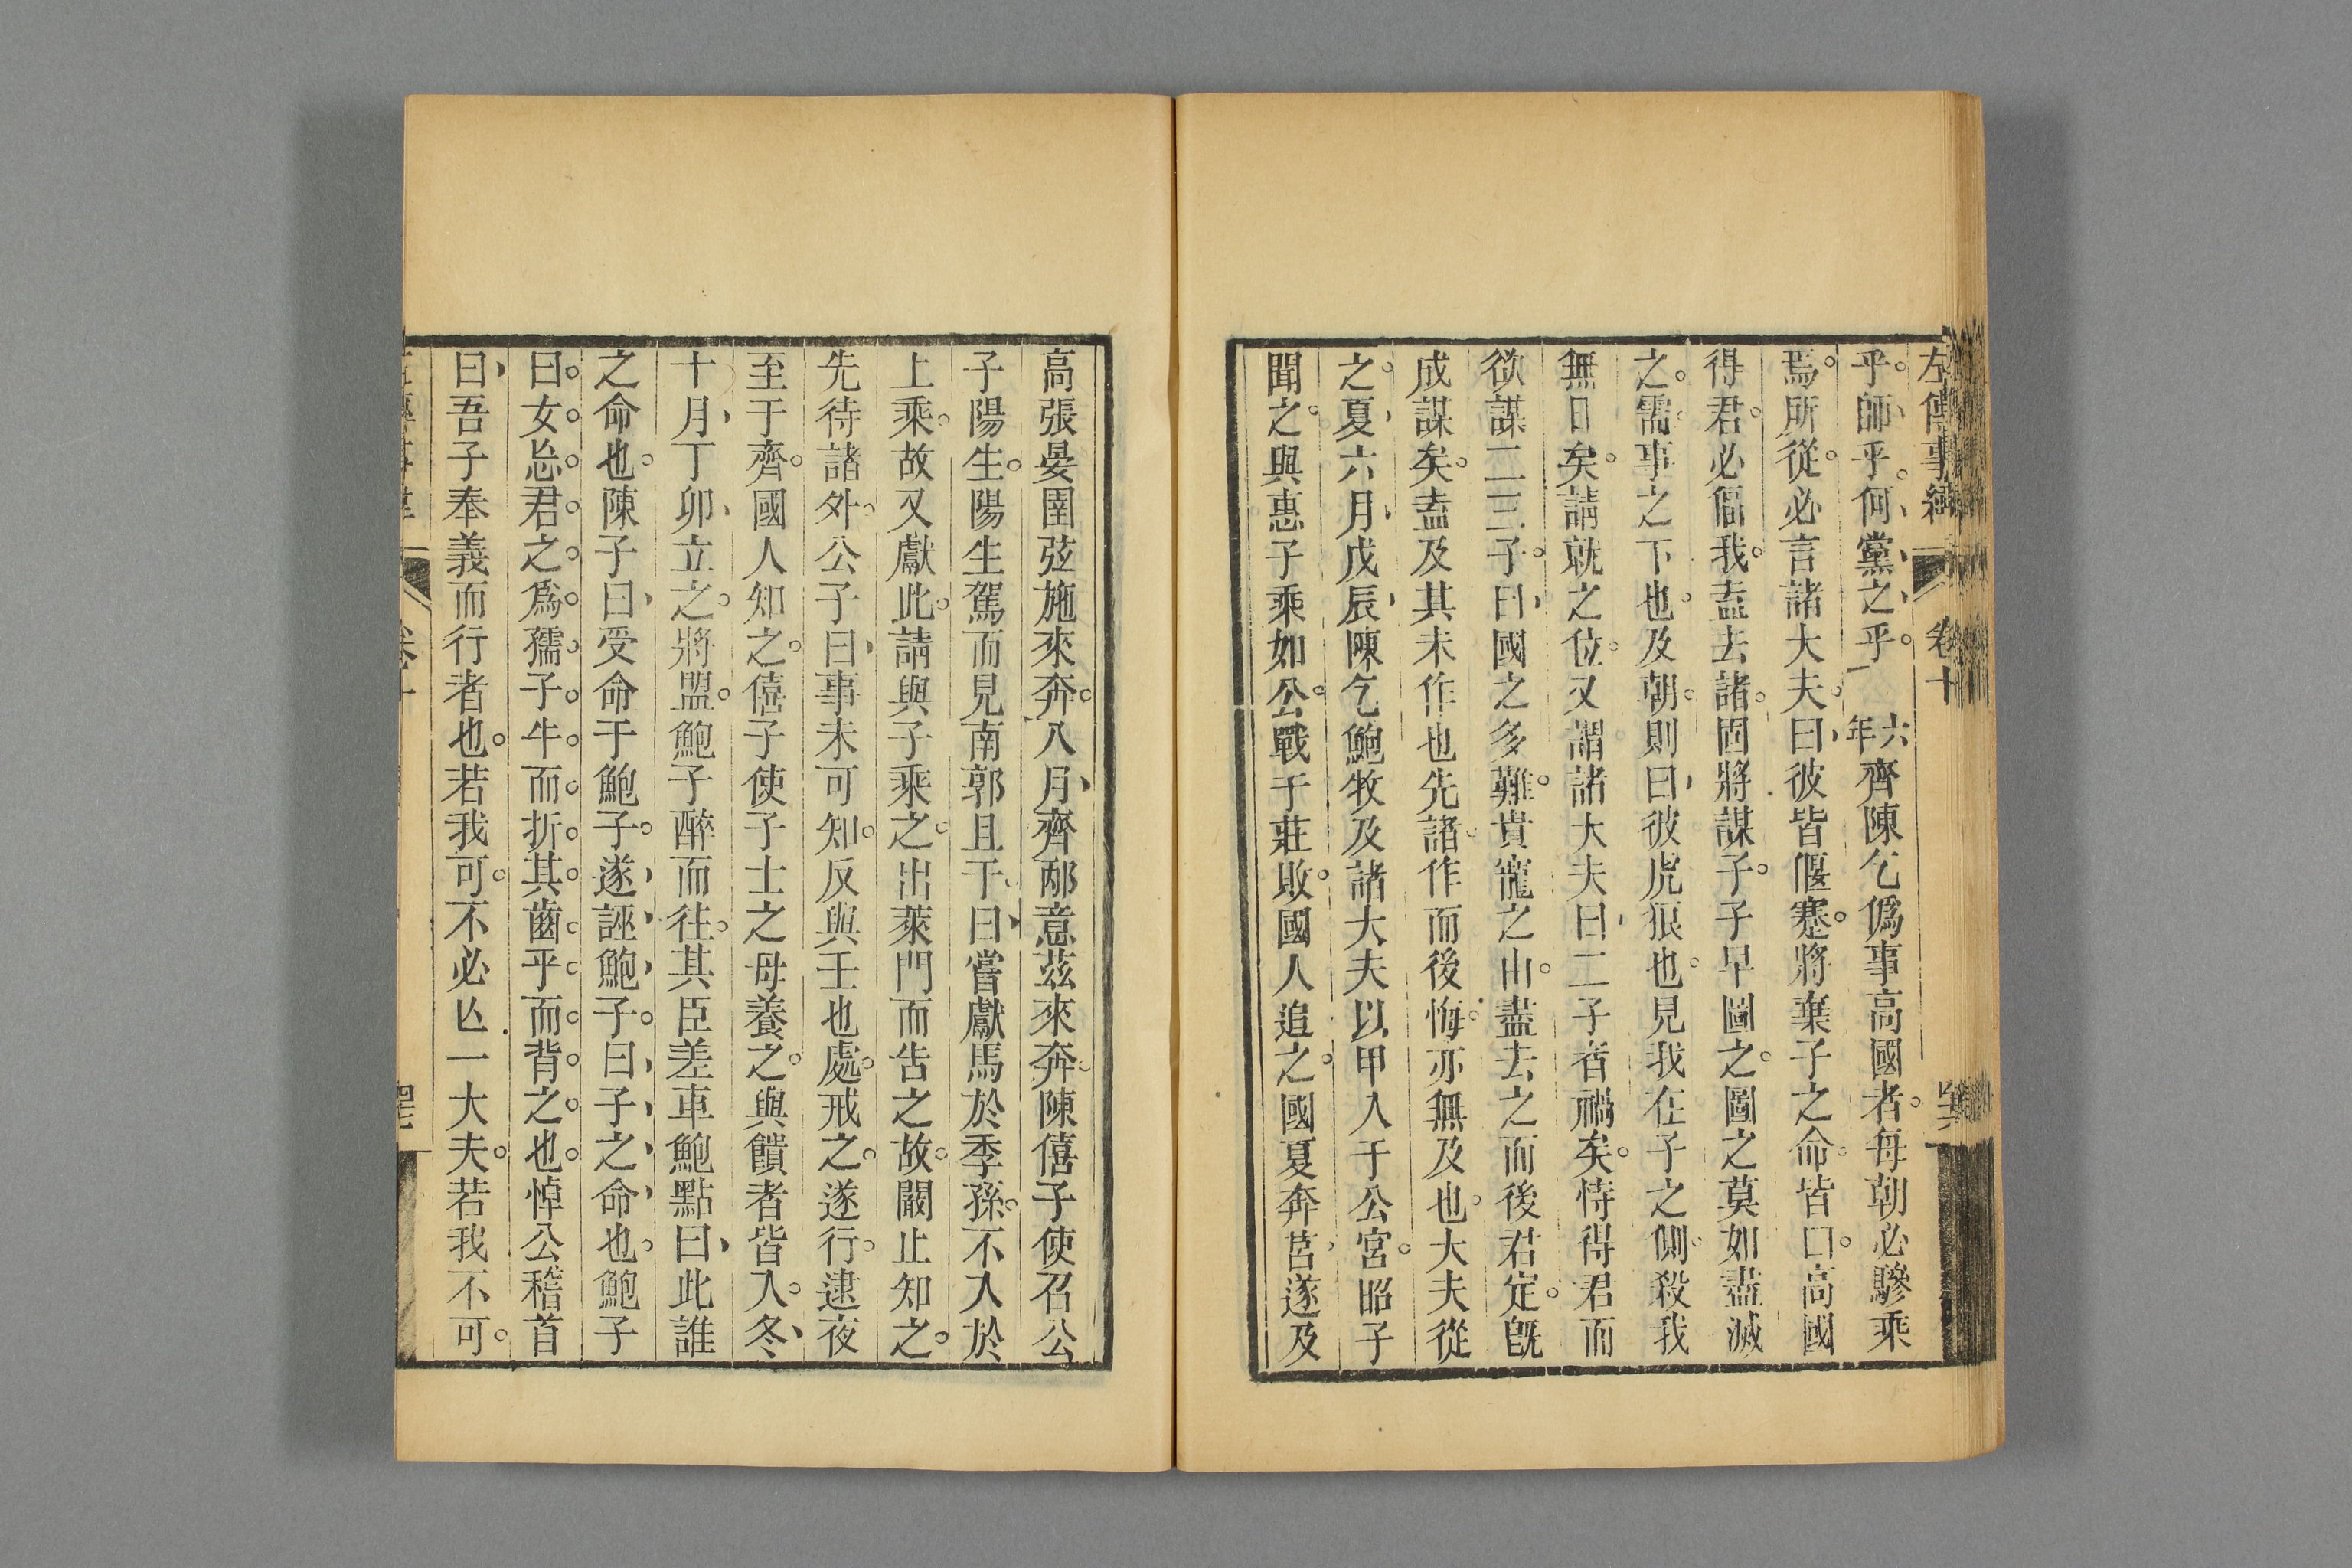 左傳事緯 卷十
乎師乎何黨之乎 六年 齊陳乞僞事高國者每朝必驂乘
焉所從必言諸大夫曰彼皆偃蹇將棄子之命皆曰高國
得君必偪我盍去諸固將謀子子早圖之圖之莫如盡滅
之需事之下也及朝則曰彼虎狼也見我在子之側殺我
無日矣請就之位又謂諸大夫曰二子者禍矣恃得君而
欲謀二三子曰國之多難貴寵之由盡去之而後君定旣
成謀矣盍及其未作也先諸作而後悔亦無及也大夫從
之夏六月戊辰陳乞鮑牧及諸大夫以甲入于公宮昭子
聞之與惠子乘如公戰于莊敗國人追之國夏奔莒遂及
高張晏圉弦施來奔八月齊邴意茲來奔陳僖子使召公
子陽生陽生駕而見南郭且于曰嘗獻馬於季孫不入於
上乘故又獻此請與子乘之出萊門而告之故闞止知之
先待諸外公子曰事未可知反與壬也處戒之遂行逮夜
至于齊國人知之僖子使子士之母養之與饋者皆入冬
十月丁卯立之將盟鮑子醉而往其臣差車鮑點曰此誰
之命也陳子曰受命于鮑子遂誣鮑子曰子之命也鮑子
曰女忘君之爲孺子牛而折其齒乎而背之也悼公稽首
曰吾子奉義而行者也若我可不必亾一大夫若我不可